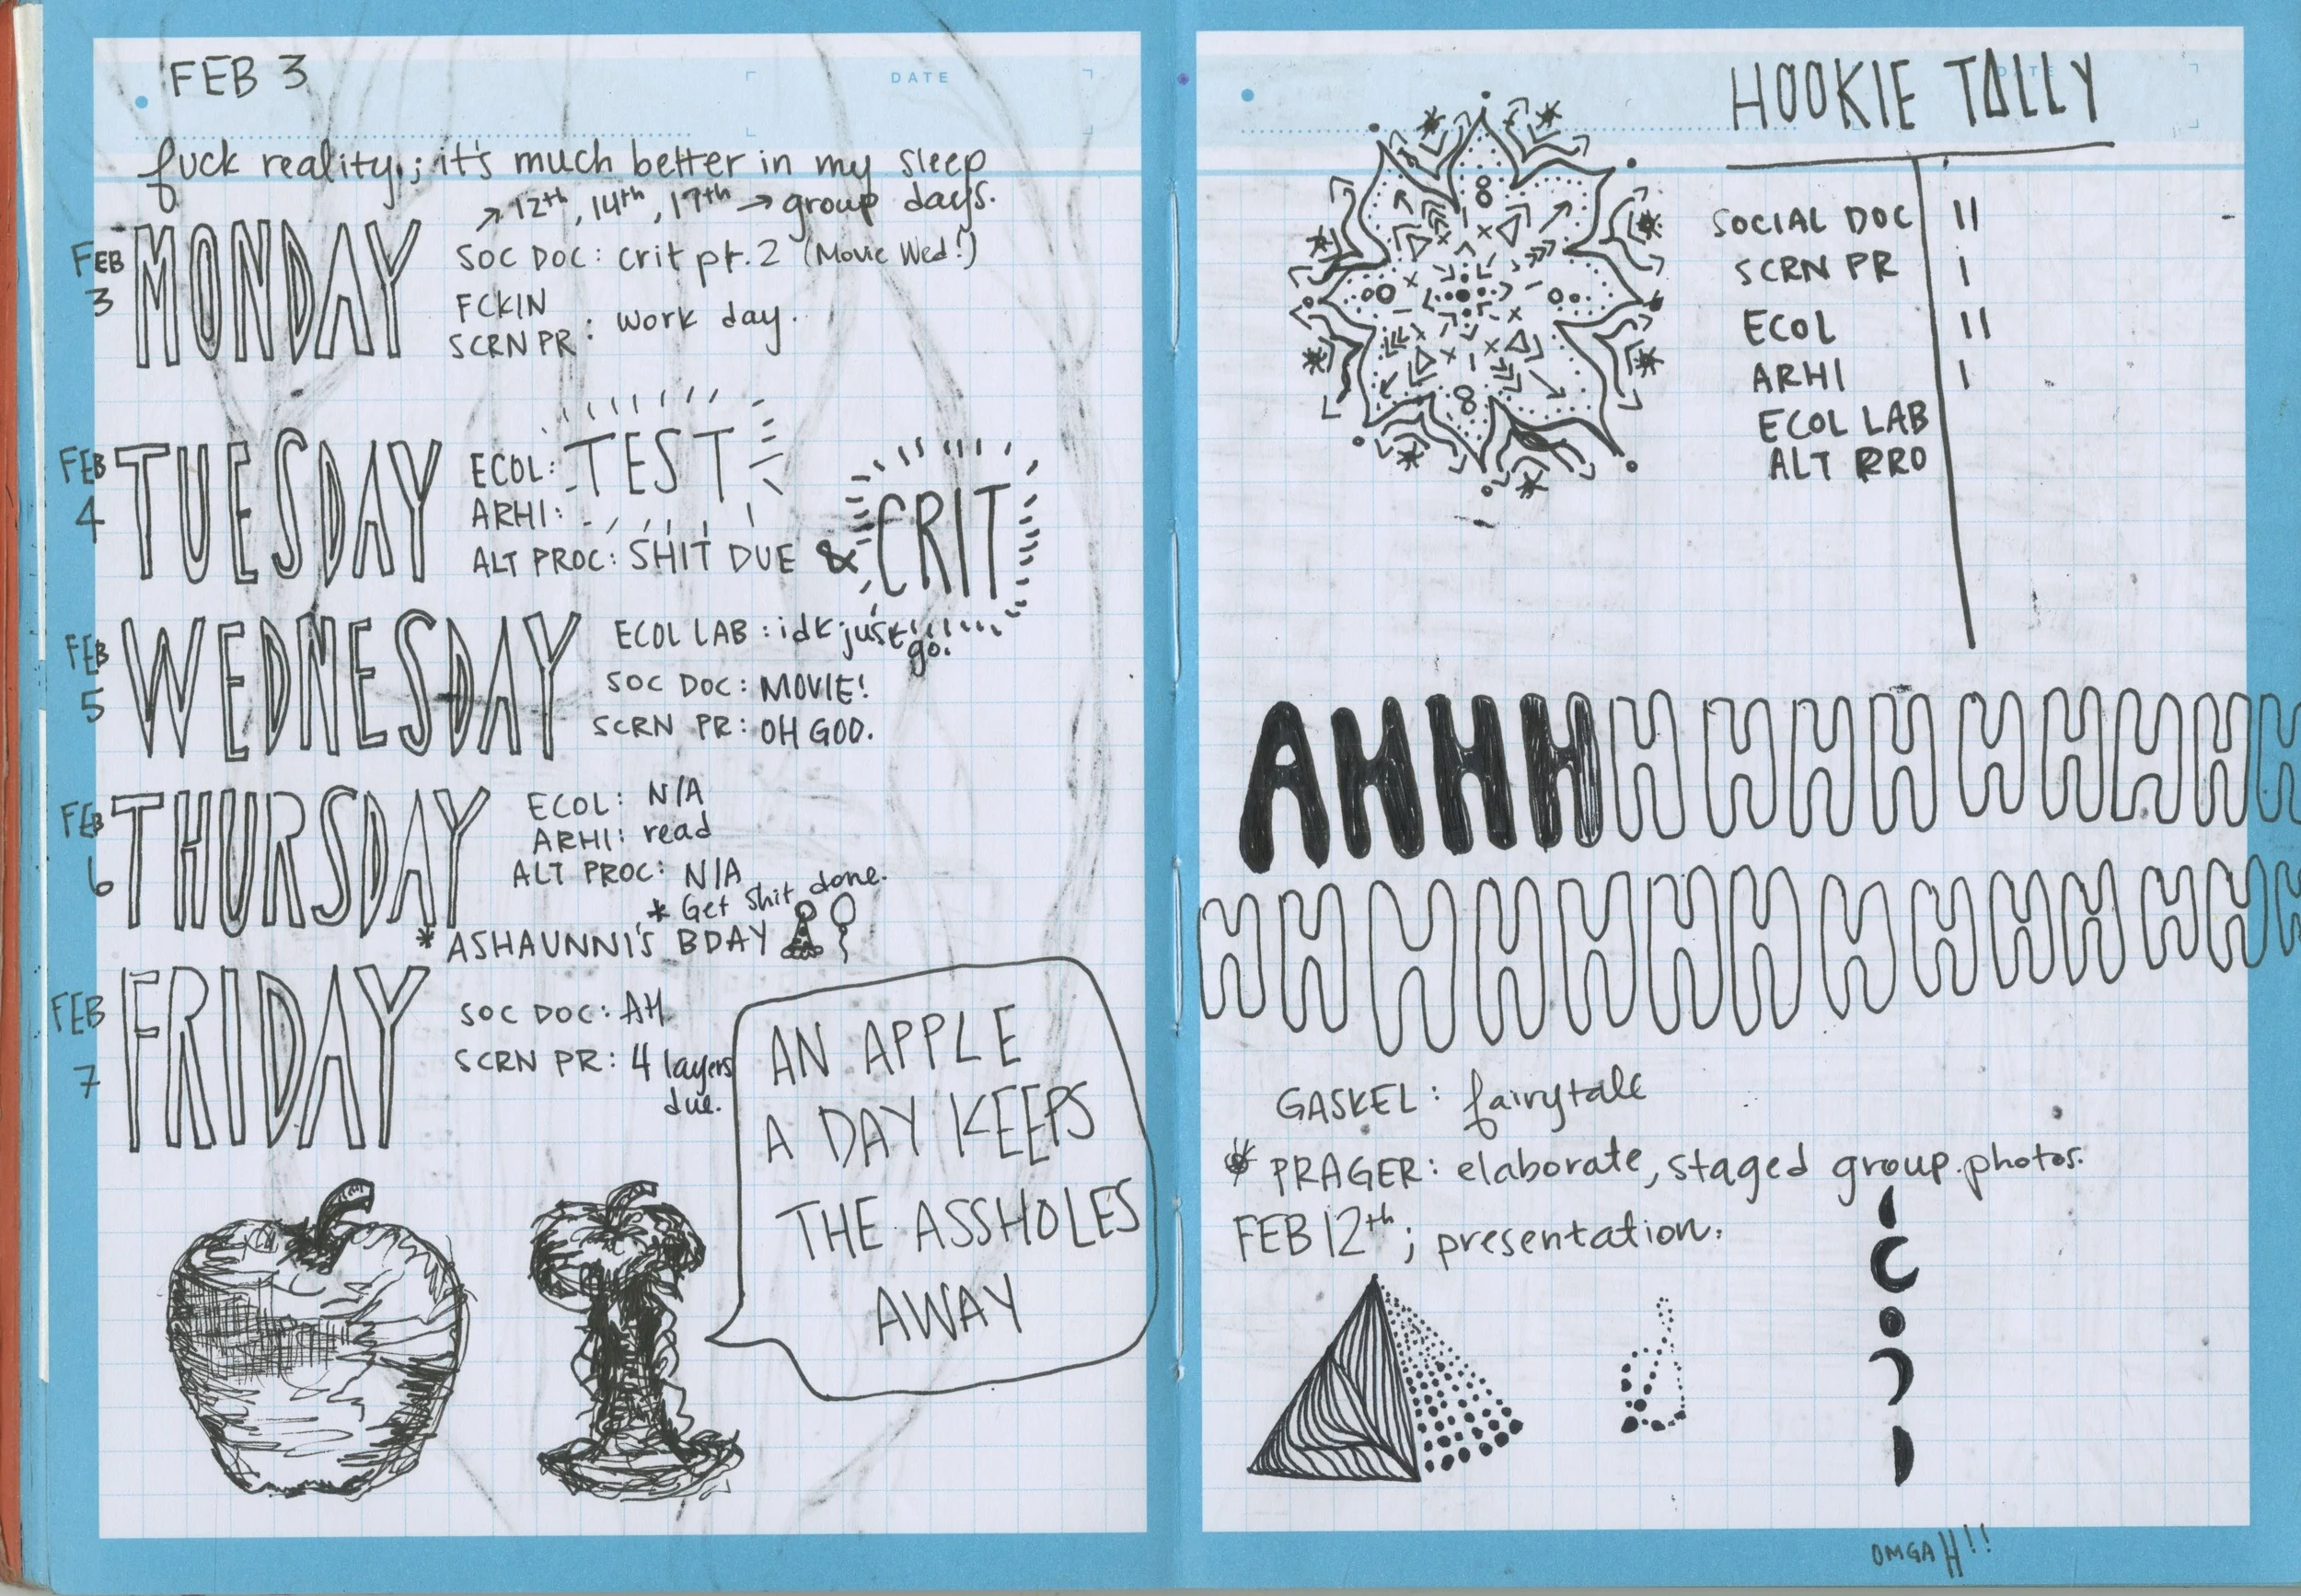 FEB 3
DATE
fuck reality; it's much better in my sleep
→ 12th, 14th, 17th → group days.
FEB 3
MONDAY
SOC DOC: crit pt. 2 (Movie Wed!)
FCKIN SCRN PR: work day.
FEB 4
TUESDAY
ECOL: TEST
ARHI:
ALT PROC: SHIT DUE & CRIT
FEB 5
WEDNESDAY
ECOL LAB: idk just go.
SOC DOC: MOVIE!
SCRN PR: OH GOD.
FEB 6
THURSDAY
ECOL: N/A
ARHI: read
ALT PROC: N/A
* Get shit done.
* ASHAUNNI'S BDAY
FEB 7
FRIDAY
SOC DOC: AH
SCRN PR: 4 layers due.
AN APPLE
A DAY KEEPS
THE ASSHOLES
AWAY
DATE
HOOKIE TALLY
SOCIAL DOC II
SCRN PR I
ECOL II
ARHI I
ECOL LAB
ALT PRO
AHHHHHHHHHHHH
HHHHHHHHHHHHH
GASKEL: fairytale
* PRAGER: elaborate, staged group photos.
FEB 12th; presentation.
OMGAH!!